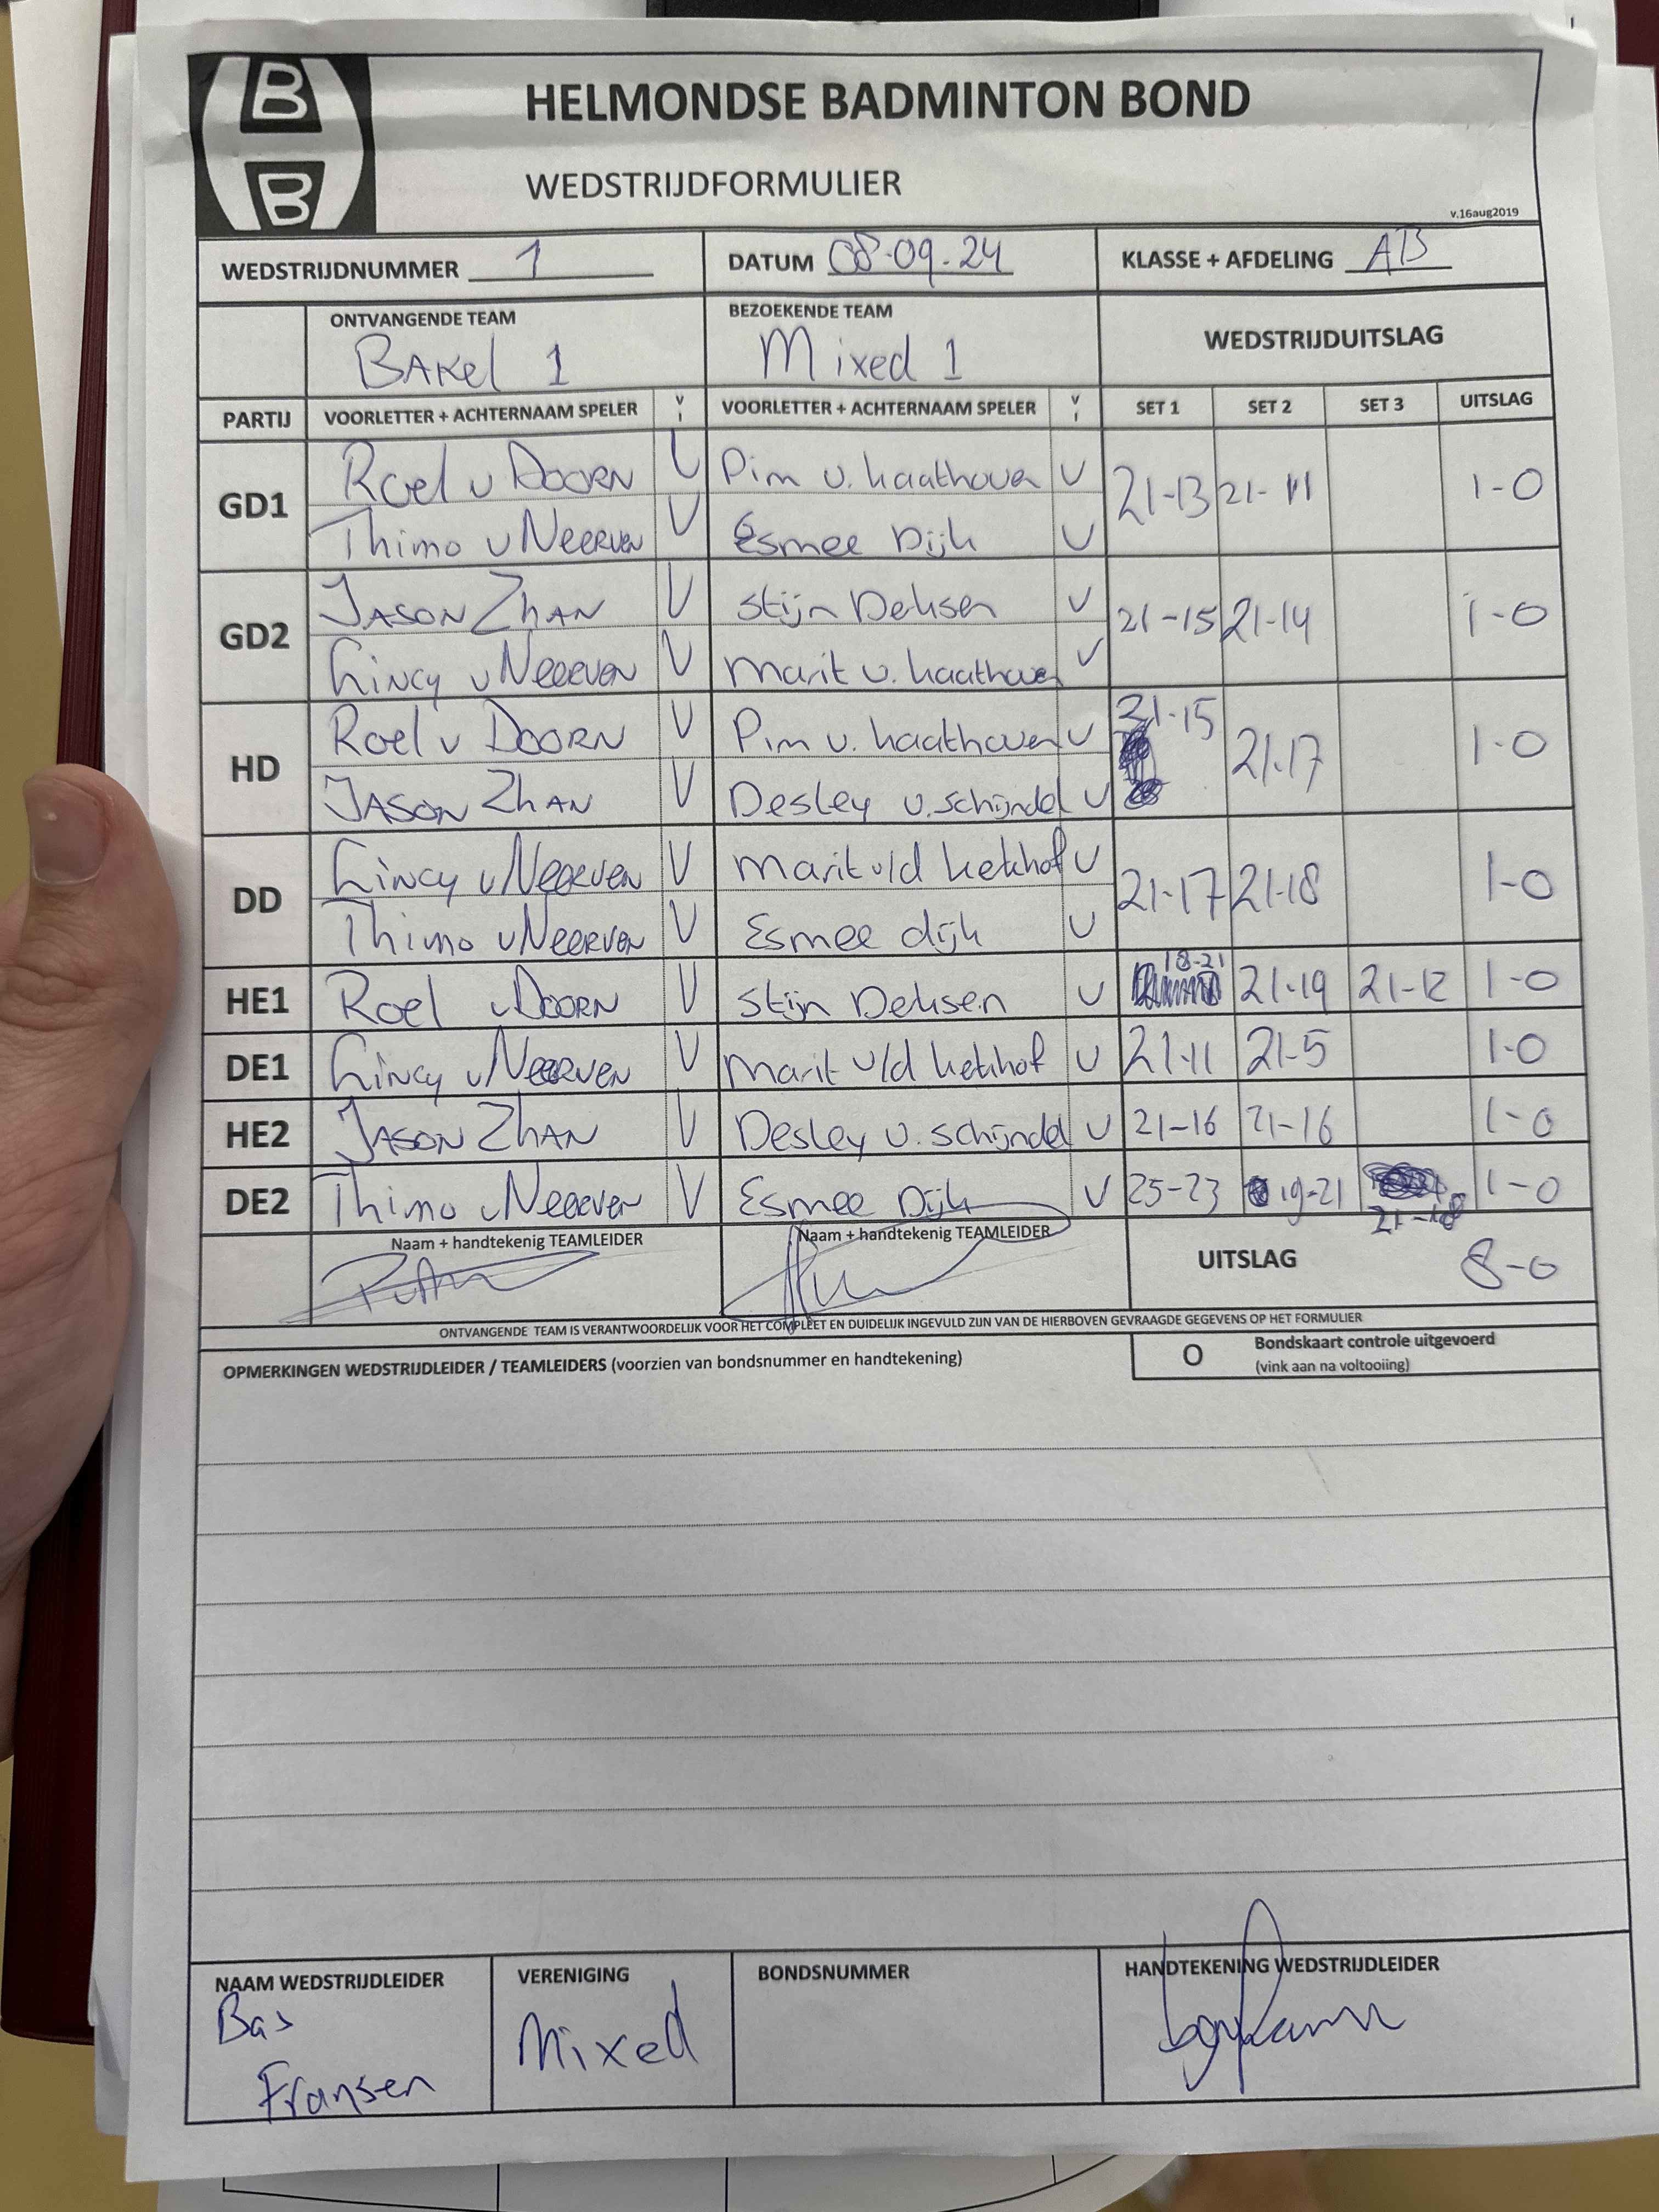 B
B
HELMONDSE BADMINTON BOND
WEDSTRIJDFORMULIER
v.16aug2019
WEDSTRIJDNUMMER 1 DATUM 08-09-24 KLASSE + AFDELING AB
ONTVANGENDE TEAM BEZOEKENDE TEAM WEDSTRIJDUITSLAG
BAKel 1 Mixed 1
PARTIJ VOORLETTER + ACHTERNAAM SPELER V I VOORLETTER + ACHTERNAAM SPELER V I SET 1 SET 2 SET 3 UITSLAG
GD1 Roel v DOORN V Pim v. Kaathoven V 21-13 21-11 1-0
Thimo v NEERVEN V Esmee Dijk V
GD2 JASON ZHAN V Stijn Derksen V 21-15 21-14 1-0
Lincy v NEERVEN V Marit v. Kaathoven V
HD Roel v DOORN V Pim v. Kaathoven V 21-15 21-17 1-0
JASON ZHAN V Desley v. Schijndel V
DD Lincy v NEERVEN V Marit v/d Kerkhof V 21-17 21-18 1-0
Thimo v NEERVEN V Esmee dijk V
HE1 Roel v DOORN V Stijn Derksen V 18-21 21-19 21-12 1-0
DE1 Lincy v NEERVEN V Marit v/d Kerkhof V 21-11 21-5 1-0
HE2 JASON ZHAN V Desley v. Schijndel V 21-16 21-16 1-0
DE2 Thimo v NEERVEN V Esmee Dijk V 25-23 19-21 21-18 1-0
Naam + handtekenig TEAMLEIDER Naam + handtekenig TEAMLEIDER UITSLAG 8-0
ONTVANGENDE TEAM IS VERANTWOORDELIJK VOOR HET COMPLEET EN DUIDELIJK INGEVULD ZIJN VAN DE HIERBOVEN GEVRAAGDE GEGEVENS OP HET FORMULIER
OPMERKINGEN WEDSTRIJDLEIDER / TEAMLEIDERS (voorzien van bondsnummer en handtekening) O Bondskaart controle uitgevoerd
(vink aan na voltooiing)
NAAM WEDSTRIJDLEIDER VERENIGING BONDSNUMMER HANDTEKENING WEDSTRIJDLEIDER
Bas Mixed
Fransen